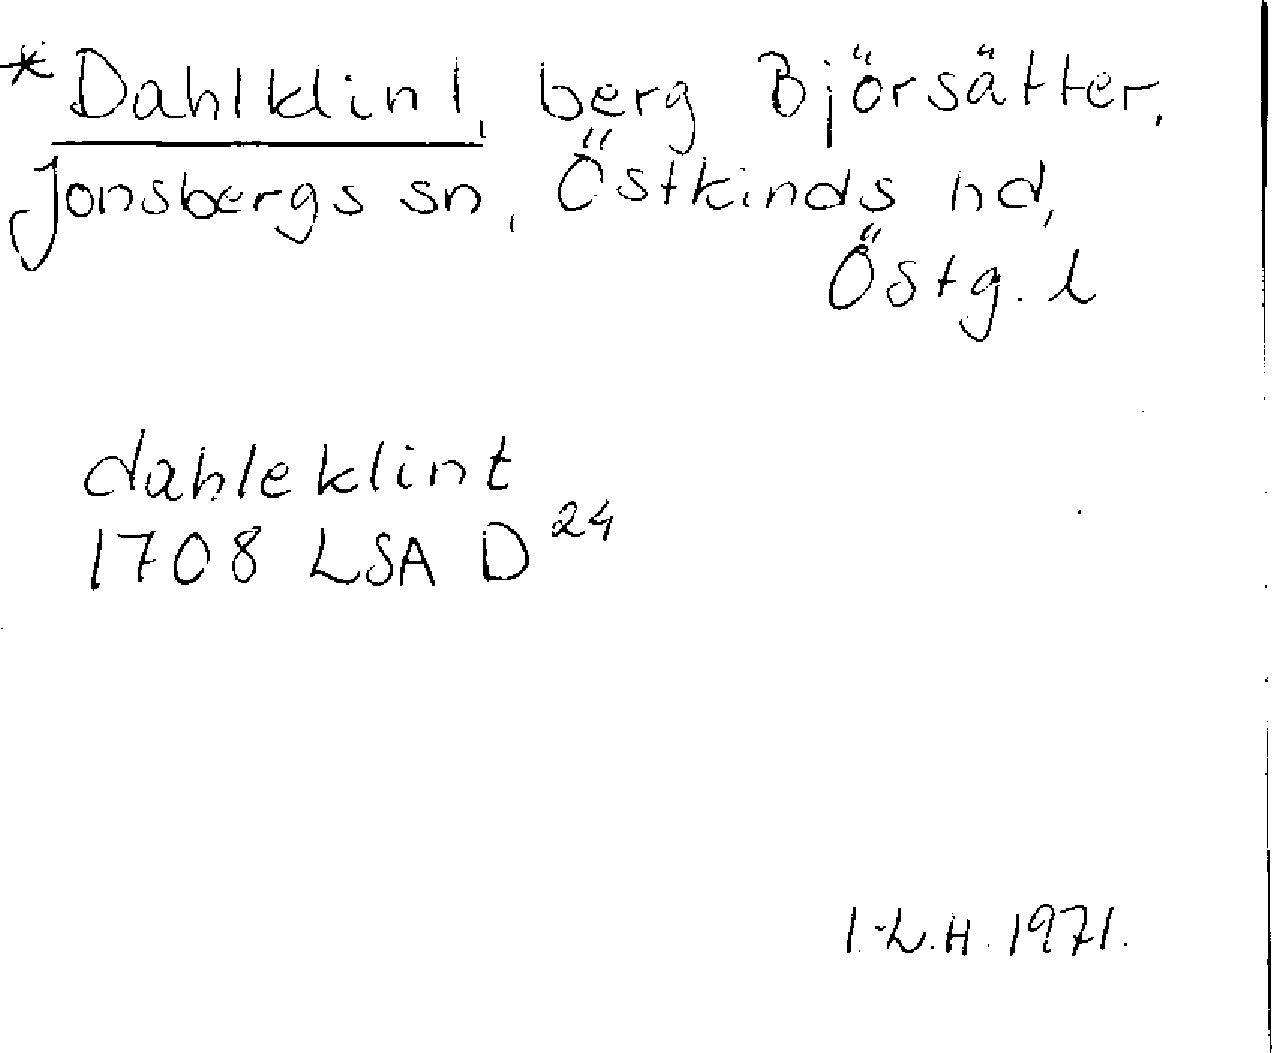 *Dahlklint, berg Björsätter,
Jonsbergs sn, Östkinds hd,
Östg. l
dahleklint
1708 LSA D 24
I.-L.H. 1971.